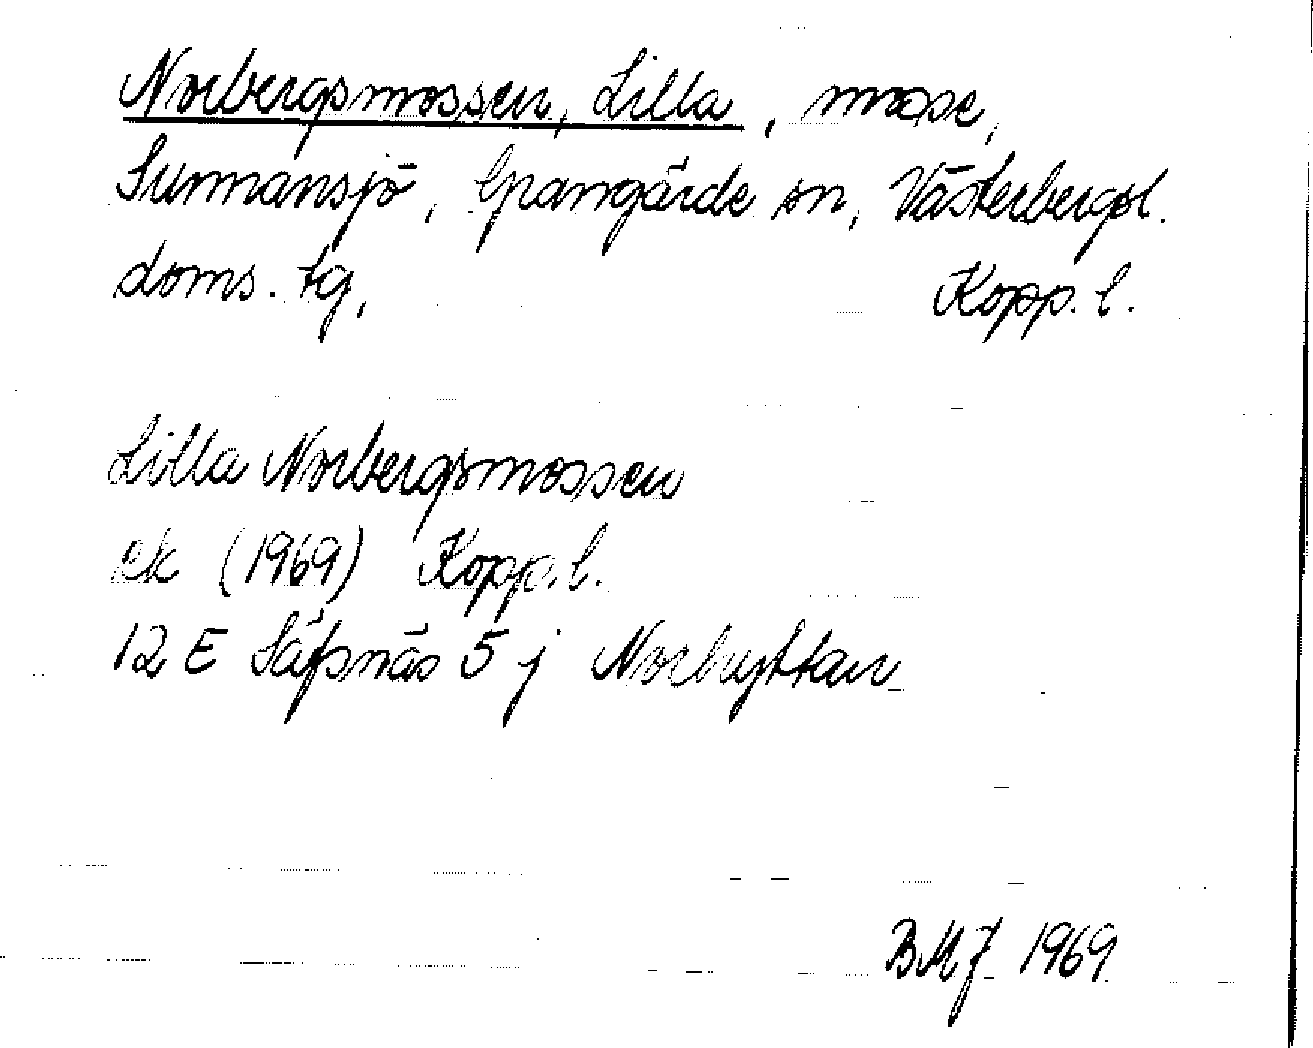 Norbergsmossen, Lilla, mosse,
Sunnansjö, Grangärde sn, Västerbergsl.
doms. tg, Kopp. l.
Lilla Norbergsmossen
ek (1969) Kopp. l.
12 E Säfsnäs 5 j Norhyttan
BMJ 1969